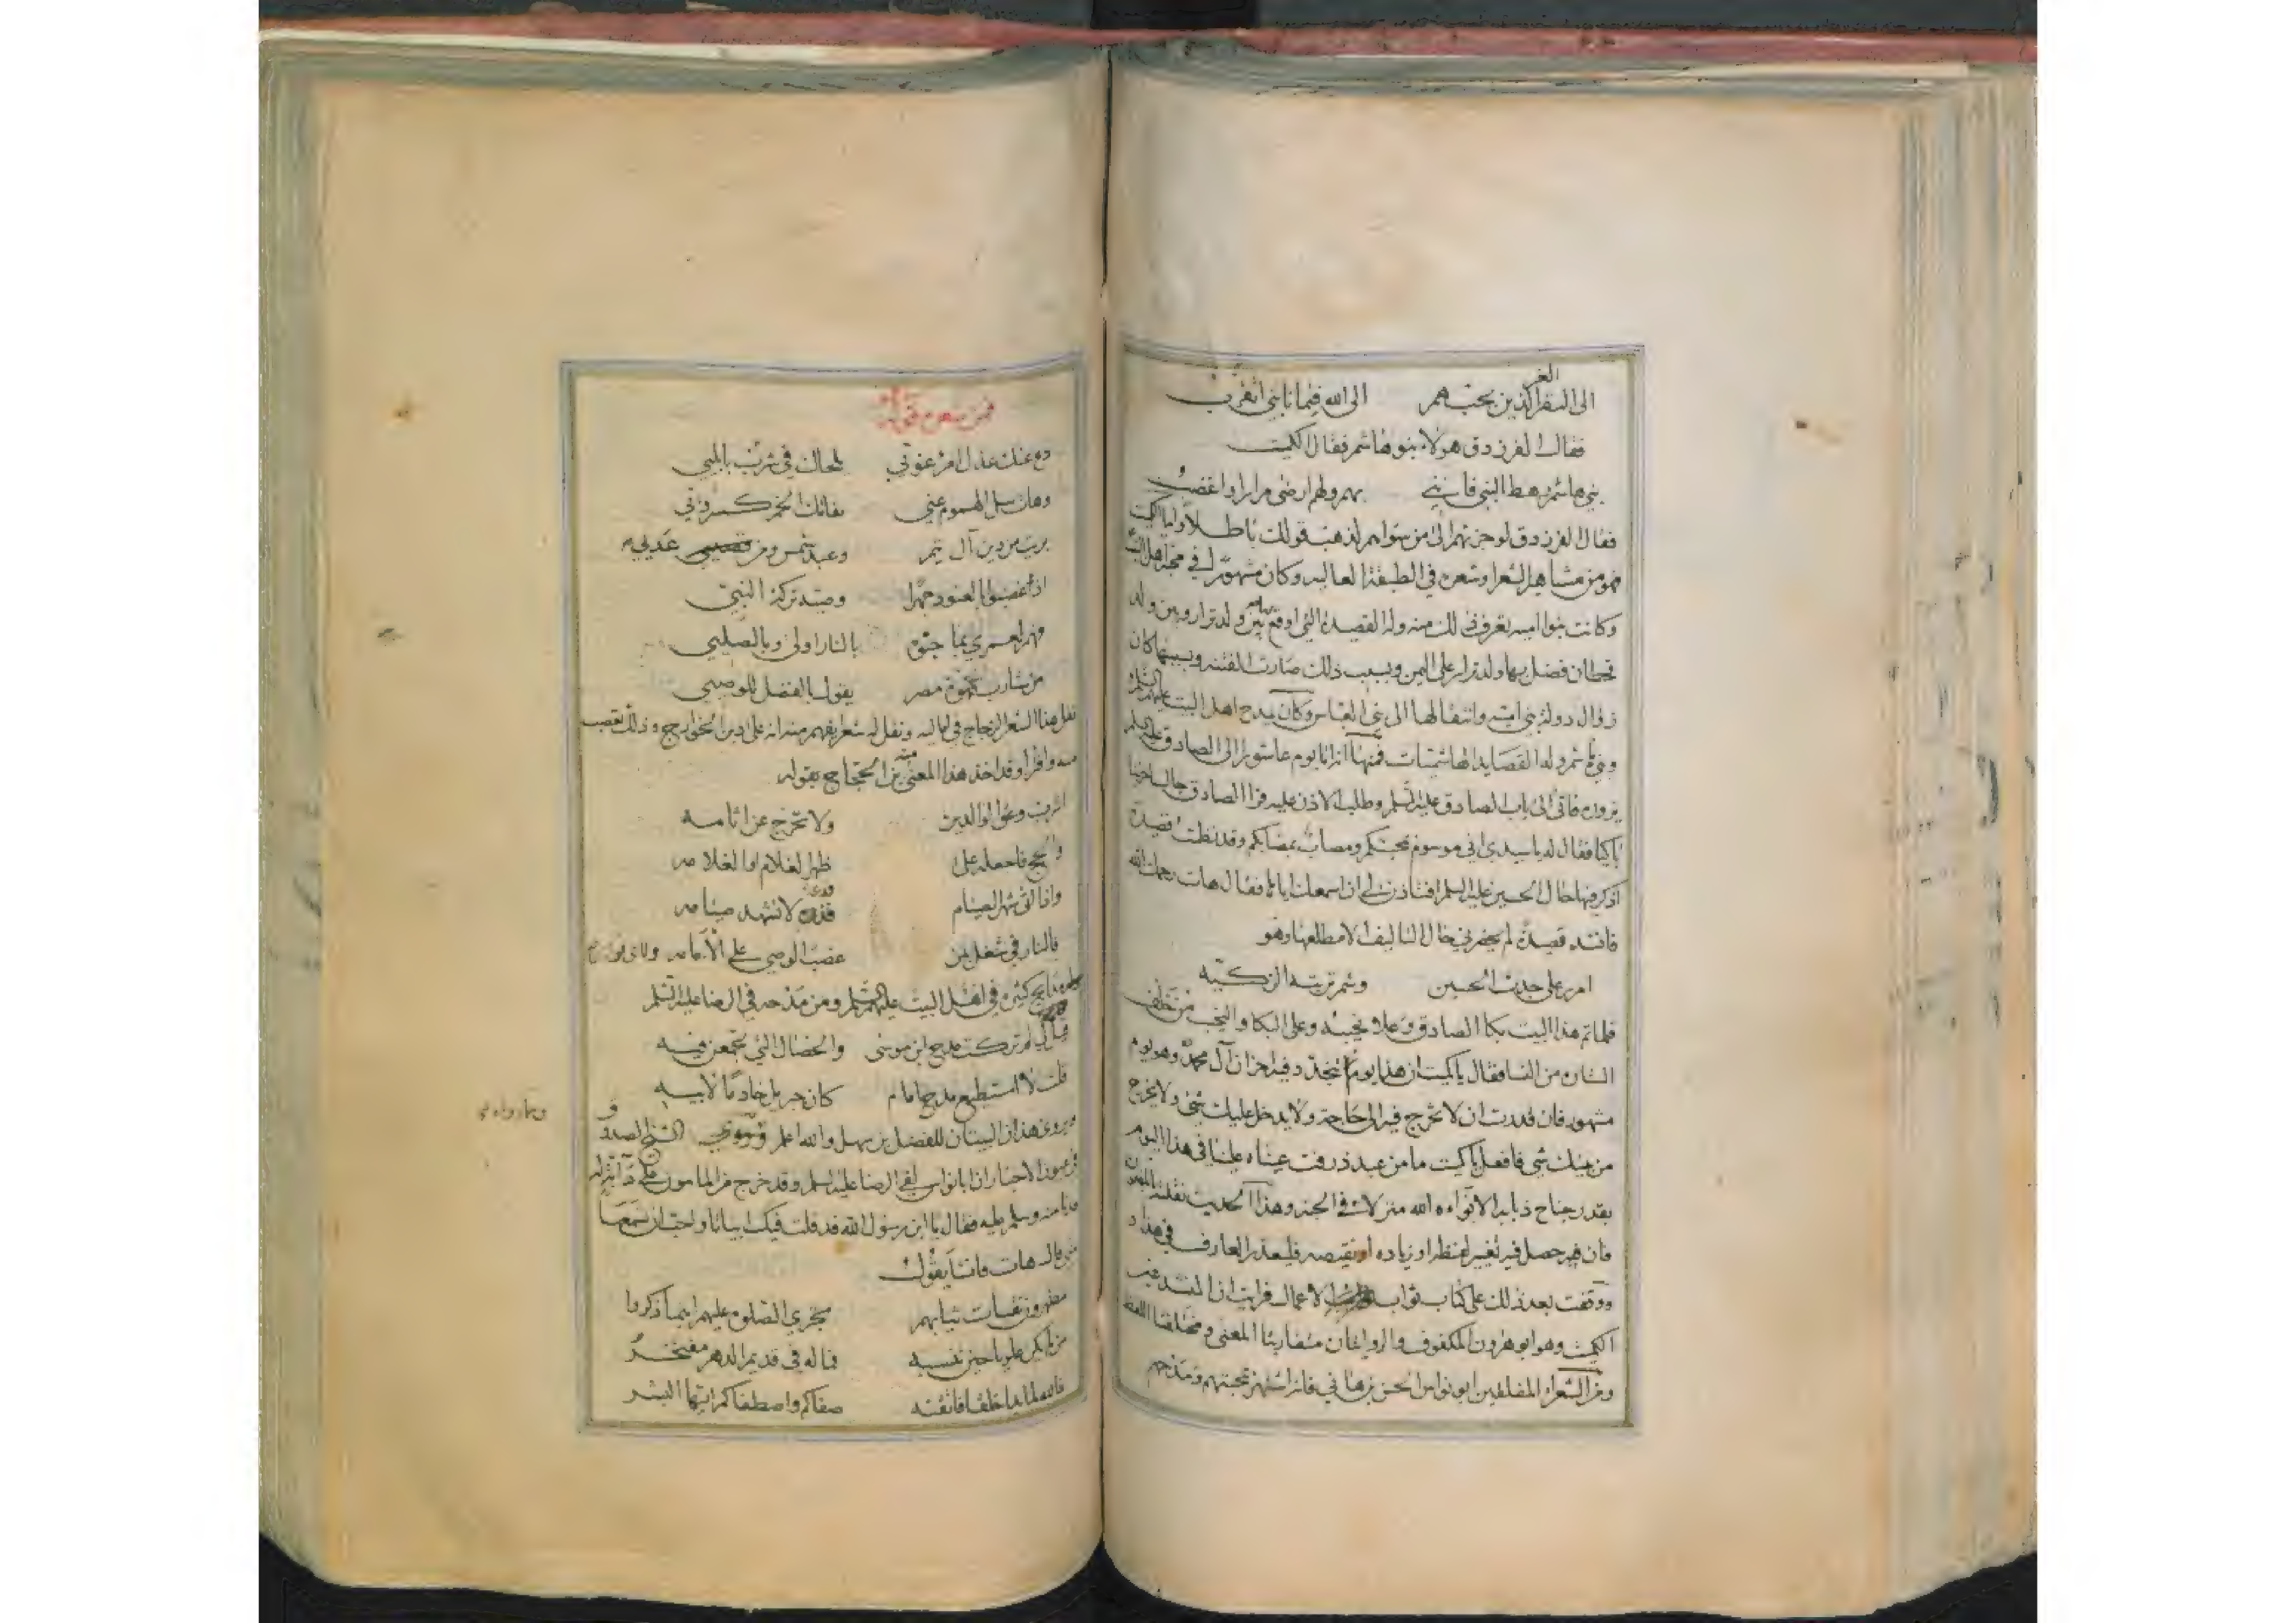 الغر
الى النفر الذين بحبهم الى الله فيما نابني اتقرب
فقال الفرزدق هولاء بنو هاشم فقال الكميت
بني هاشم رهط النبي فانني بهم ولهم ارضى مرارا واغضب
فقال الفرزدق لو جزتهم الى من سواهم لذهب قولك باطلا واما الكميت
فهو من مشاهير الشعرا وشعره في الطبقة العاليه وكان مشهورا في محبة اهل البيت
وكانت بنوا اميه تعرف ذلك منه وله القصيدة التي اوقع بها بين ولد نزار وبين ولد
قحطان فضل بها ولد نزار على اليمن وبسبب ذلك صارت الفتنه وبسببها كان
زوال دولة بني اميه وانتقالها الى بني العباس وكان يمدح اهل البيت عليهم السلم
وبني هاشم وله القصايد الهاشميات فمنها انه اتا يوم عاشورا الى الصادق عليه السلم
يزوره فاتى الى باب الصادق عليه السلم وطلب الاذن عليه فراا الصادق جالسا
باكيا فقال له يا سيدي اني موسوم بمحبتكم ومصاب بمصابكم وقد نظمت قصيدة
اذكر فيها حال الحسين عليه السلم افتاذن لي ان اسمعك اياها فقال هات رحمك الله
فانشد قصيدة لم يحضرني حال التاليف الا مطلعها وهو
امرر على جدث الحسين وشم تربته الزكيه
فلما تم هذا البيت بكا الصادق وعلا نحيبه وعلى البكا والنحب من خلف
الستاره من النسا فقال يا كميت ان هذا يوم تتجدد فيه احزان آل محمد وهو يوم
مشهور فان قدرت ان لا تخرج فيه الى حاجة ولا يدخل عليك شي ولا يخرج
من بيتك شي فافعل يا كميت ما من عبد ذرفت عيناه علينا في هذا اليوم
بقدر جناح ذبابه الا بواءه الله منزلا في الجنه وهذا الحديث نقلته
فان حصل فيه تغيير لفظ او زياده او نقيصه فليعذر العارف في هذا
ووقفت بعد ذلك على كتاب ثواب الاعمال فرايت ان المنشد غير
الكميت وهو ابو هرون المكفوف والروايتان متقاربتا المعنى ومختلفتا اللفظ
ومن الشعراء المفلقين ابو نواس الحسن بن هاني فانه اشتهر بمحبتهم ومدحهم
فمن شعره قوله
دع عنك عذل امرء غوتي يلحاك في شرب بابلي
وهات سل الهموم عني بفاتك الخمر كسروتي
بريت من دين آل تيم وعبد شمس ومن عدي
اذ غصبوا العنود جهرا وصيه تركة النبي
فهم لعمري بما جنوه بالنار اولى وبالصلي
من شارب قهوة مصر يقول بالفضل للوصي
نقل هذا الشعر الزجاج في اماليه ونقل له شعرا يفهم منه انه على دين الخوارج وذلك تعصب
منه وافترا وقد اخذ هذا المعنى منه بن الحجاج بقوله
اشرب وعق الوالدين ولا تحرج عن اثامه
والحج فاجعله على ظهر الغلام او الغلامه
واذا اتى شهر الصيام فدعه لا تشهد صيامه
فالنار في شغل بمن غصب الوصي على الامامه
مدايح كثيره في اهل البيت عليهم السلم ومن مدحه في الرضا عليه السلم
قال لي لم تركت مدح ابن موسى والخصال التي تجمعن فيه
قلت لا استطيع مدح امام كان جبريل خادما لابيه
ويروى هذان البيتان للفضل بن سهل والله اعلم وروى الشيخ الصدوق
في عيون الاخبار ان ابا نواس لقي الرضا عليه السلم وقد خرج من المامون على دآبة له
فدنا منه وسلم عليه فقال يا ابن رسول الله قد قلت فيك ابياتا واحب ان تسمعها
مني قال هات فانشا يقول
مطهرون نقيات ثيابهم تجري الصلوة عليهم اينما ذكروا
من لم يكن علويا حين تنسبه فما له في قديم الدهر مفتخر
فالله لما بدا خلقا فاتقنه صفاكم واصطفاكم ايها البشر